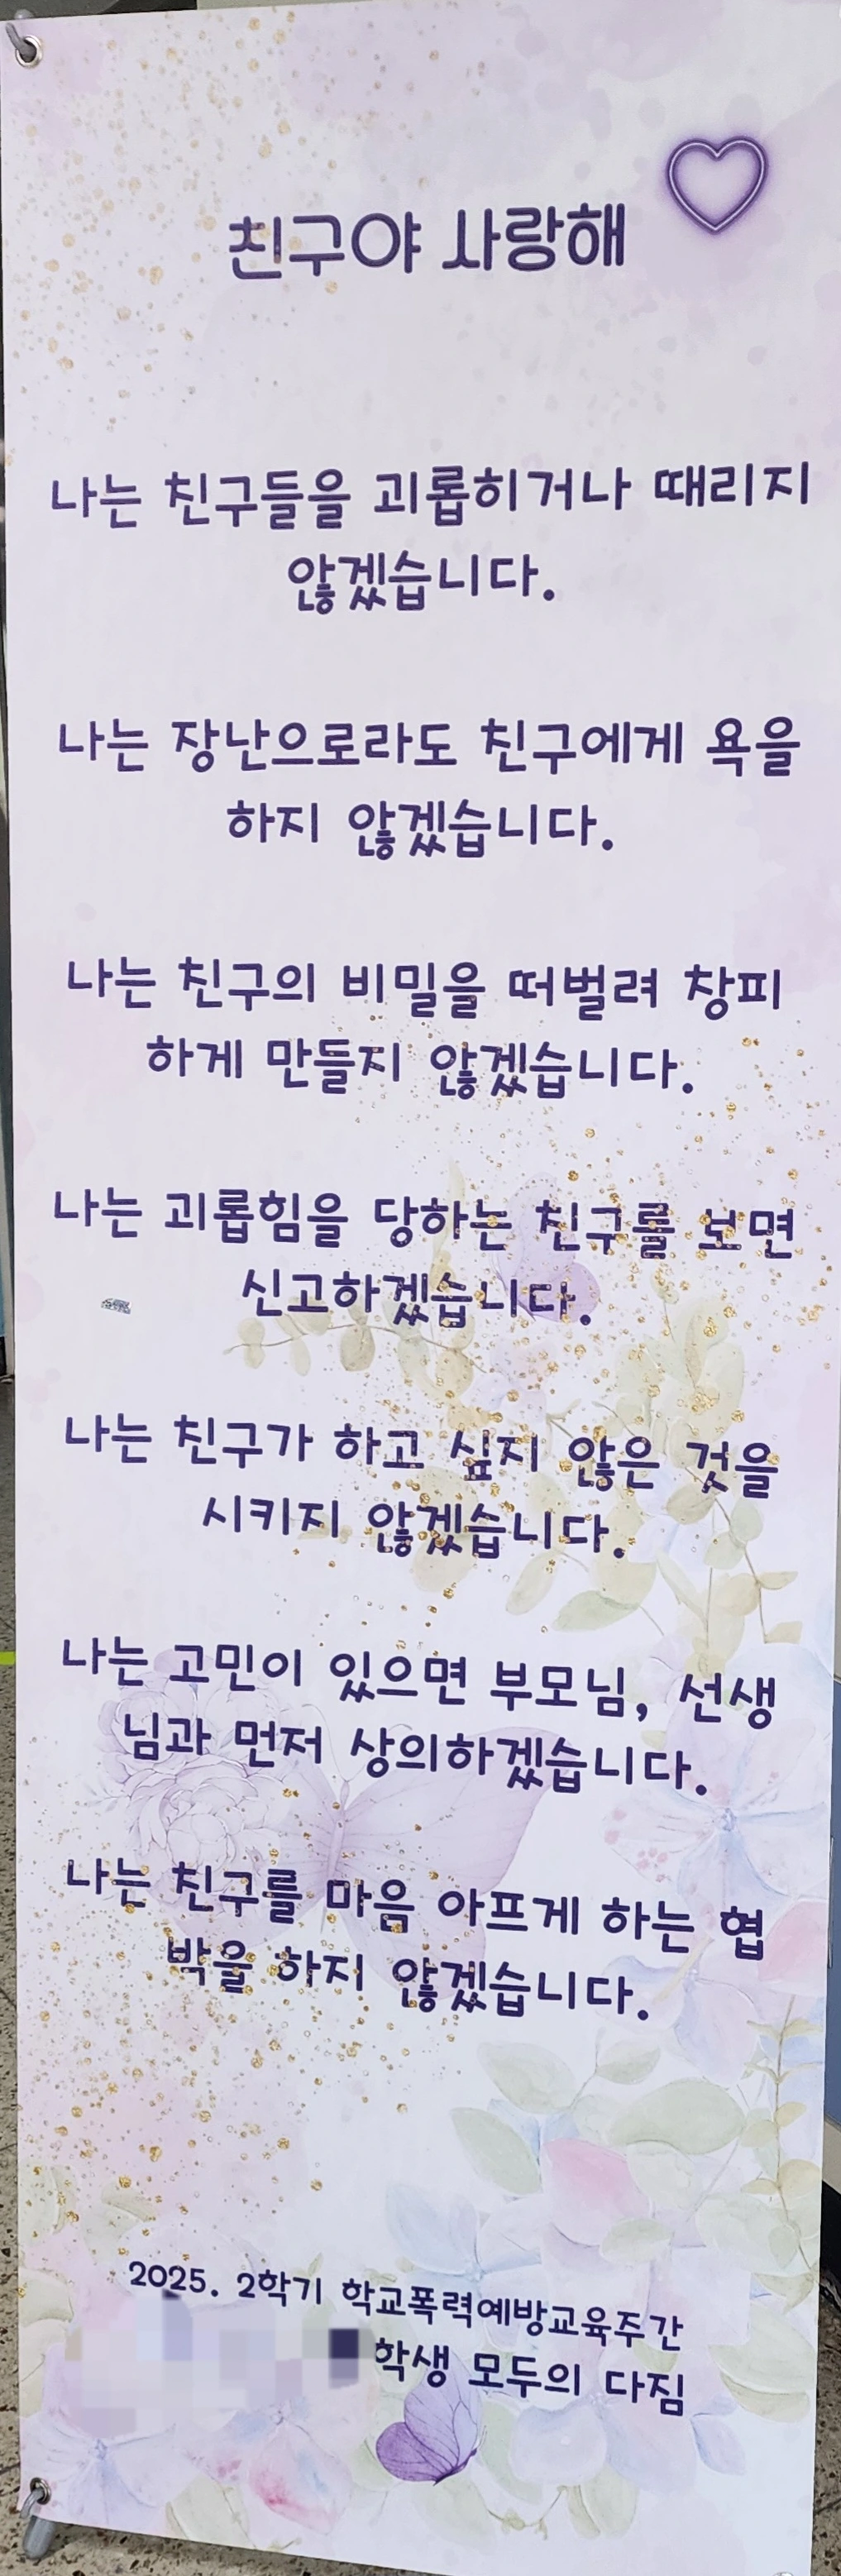 친구야 사랑해
나는 친구들을 괴롭히거나 때리지
않겠습니다.
나는 장난으로라도 친구에게 욕을
하지 않겠습니다.
나는 친구의 비밀을 떠벌려 창피
하게 만들지 않겠습니다.
나는 괴롭힘을 당하는 친구를 보면
신고하겠습니다.
나는 친구가 하고 싶지 않은 것을
시키지 않겠습니다.
나는 고민이 있으면 부모님, 선생
님과 먼저 상의하겠습니다.
나는 친구를 마음 아프게 하는 협
박을 하지 않겠습니다.
2025. 2학기 학교폭력예방교육주간
학생 모두의 다짐